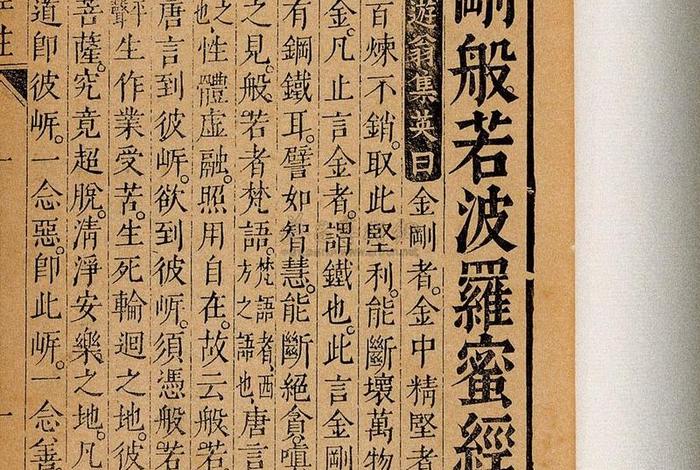 剛般若波羅蜜經
遊翁集英曰金剛者。金中精堅者
百煉不銷。取此堅利。能斷壞萬物
金。凡止言金者。謂鐵也。此言金剛
有鋼鐵耳。譬如智慧。能斷絕貪。嗔
之見。般若者梵語。梵語者、西方之語也、唐言
之也、性體虛融。照用自在。故云般若
唐言到彼岍。欲到彼岍。須憑般若
平聲生作業受苦。生死輪迴之地。彼
菩薩。究竟超脫。清淨安樂之地。凡
道即彼岍。一念惡。即此岍。一念善